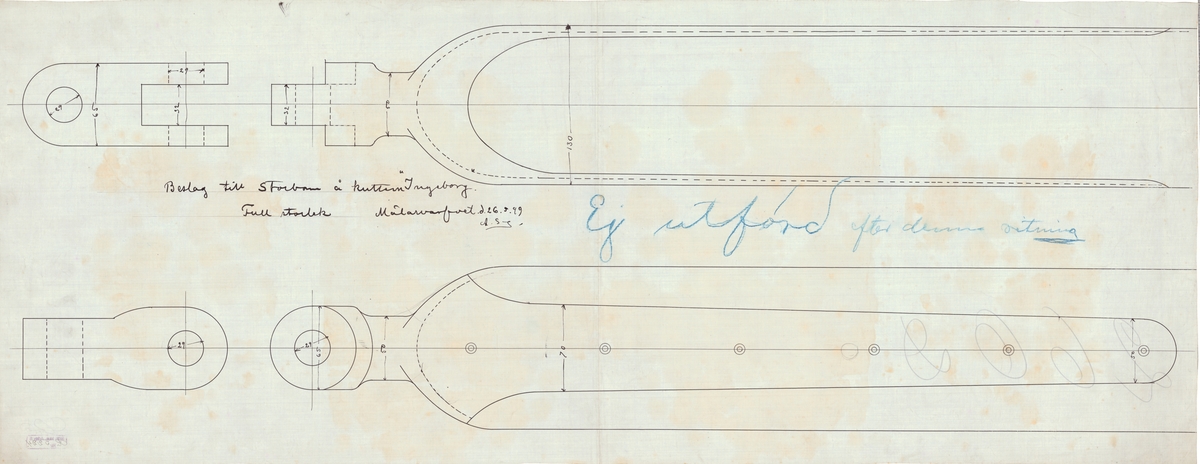 29
29
65
32
32
130
Beslag till Storbom å kuttern "Ingeborg".
Full storlek Mälarvarfvet d. 26.3.99
Ej utförd efter denna ritning
29
29
65
70